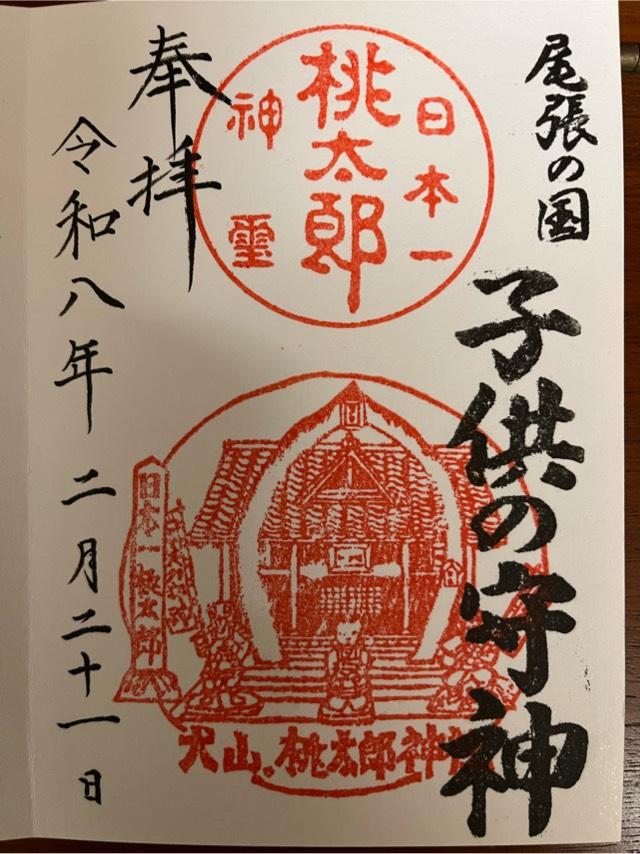 尾張の国
子供の守神
日本一
桃太郎
神霊
日本一桃太郎
犬山、桃太郎神
奉拝
令和八年二月二十一日